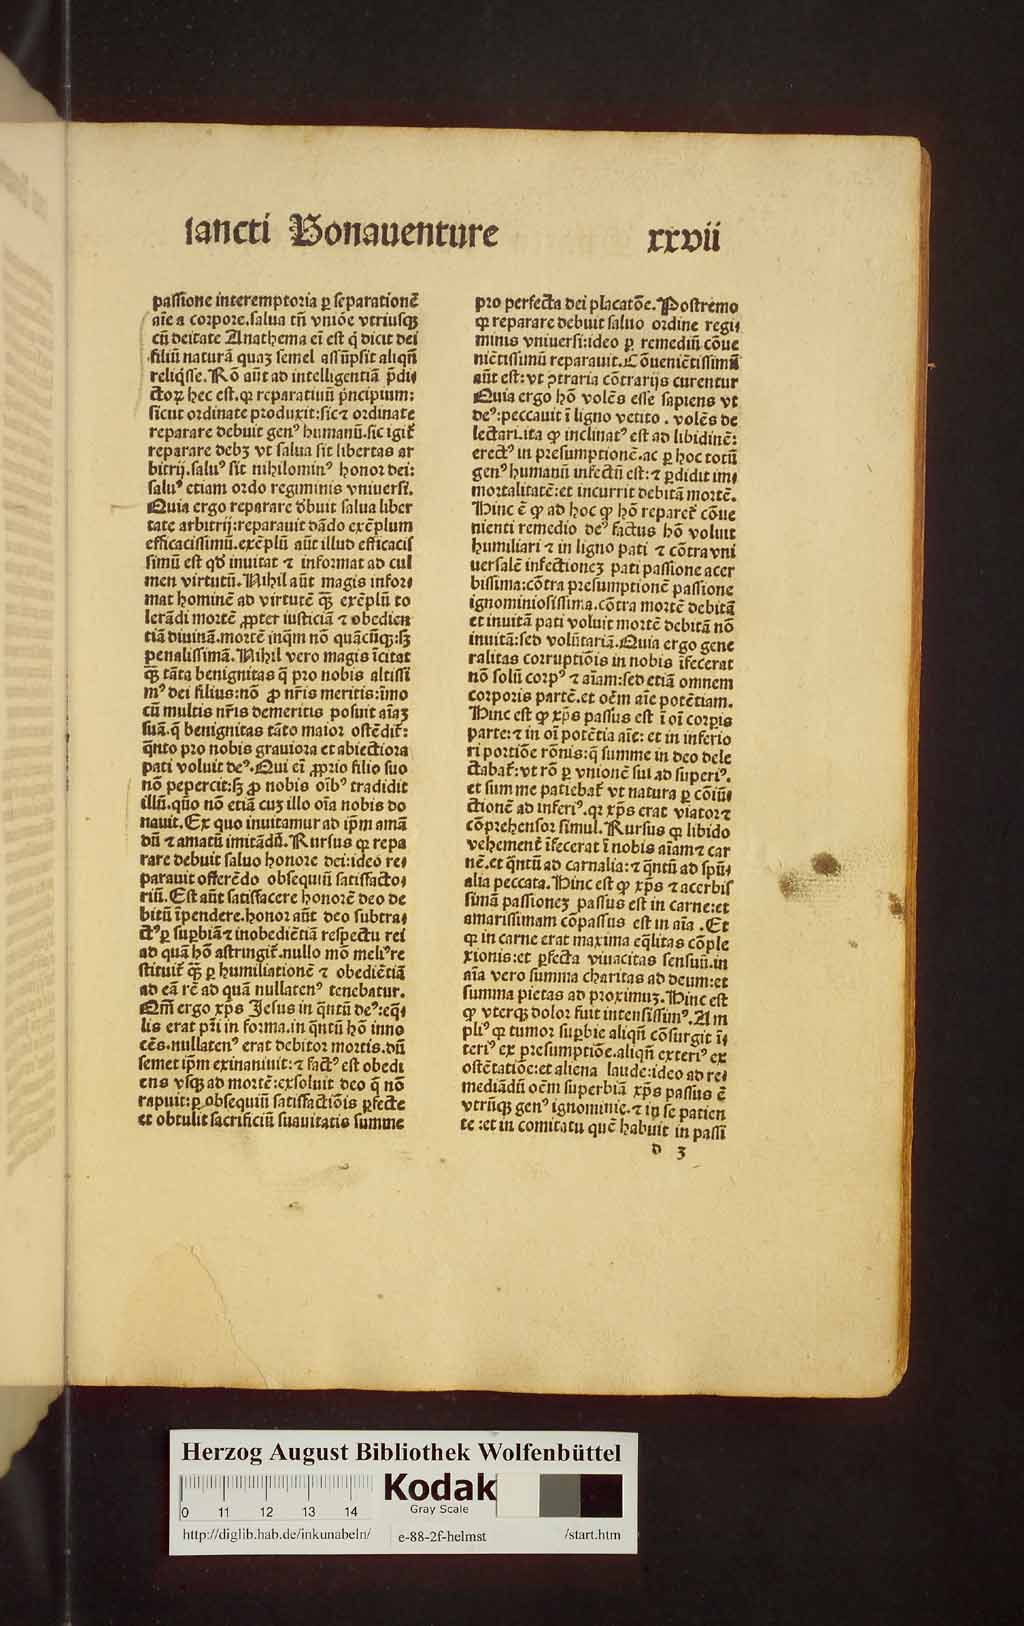 sancti Bonauenture
xxvii
passione interemptoria ꝑ separationē
aīe a corpore.salua tn̄ vniōe vtriusqꝫ
cū deitate Anathema eī est q̇ dicit dei
filiū naturā quaꝫ semel assūpsit aliqn̄
reliq̇sse.Rō aūt ad intelligentiā p̄di⸗
ctoꝝ hec est.ꝙ reparatiuū pͥncipium:
sicut ordinate produxit:sic ⁊ ordinate
reparare debuit genꝰ humanū.sic igit᷑
reparare debꝫ vt salua sit libertas ar
bitrij.saluꝰ sit nihilominꝰ honor dei:
saluꝰ etiam ordo regiminis vniuersi.
Quia ergo reparare dˀbuit salua liber
tate arbitrij:reparauit dādo exēplum
efficacissimū.exēplū aūt illud efficacis
simū est qd̓ inuitat ⁊ informat ad cul
men virtutū.Nihil aūt magis infor⸗
mat hominē ad virtutē qꝫ̄ exēplū to
lerādi mortē ꝓpter iusticiā ⁊ obedien
tiā diuinā.mortē inq̄m nō quācūqꝫ:sꝫ
penalissimā.Nihil vero magis īcitat
qꝫ̄ tāta benignitas q̄ pro nobis altissi
mꝰ dei filius:nō ꝓ nr̄is meritis:īmo
cū multis nr̄is demeritis posuit aīaꝫ
suā.q̄ benignitas tāto maior ostēdit᷑:
q̄nto pro nobis grauiora et abiectiora
pati voluit deꝰ.Qui eī ꝓprio filio suo
nō pepercit:sꝫ ꝓ nobis oībꝰ tradidit
illū.quō nō etiā cuꝫ illo oīa nobis do
nauit.Ex quo inuitamur ad ip̄m amā
dū ⁊ amatū imitādū.Rursus ꝙ repa
rare debuit saluo honore dei:ideo re⸗
parauit offerēdo obsequiū satisfacto⸗
riū.Est aūt satisfacere honorē deo de
bitū īpendere.honor aūt deo subtra⸗
ctꝰ ꝑ suꝑbiā ⁊ inobediētiā respectu rei
ad quā hō astringit᷑.nullo mō meliꝰ re
stituit᷑ qꝫ̄ ꝑ humiliationē ⁊ obediētiā
ad eā rē ad quā nullatenꝰ tenebatur.
Qm̄ ergo xp̄s Jesus in q̄ntū deꝰ:eq̄⸗
lis erat pr̄i in forma.in q̄ntū hō inno
cēs.nullatenꝰ erat debitor mortis.dū
semet ip̄m exinaniuit:⁊ factꝰ est obedi
ens vsqꝫ ad mortē:exsoluit deo q̄ nō
rapuit:ꝑ obsequiū satisfactiōis ꝑfecte
et obtulit sacrificiū suauitatis summe
pro perfecta dei placatōe.Postremo
ꝙ reparare debuit saluo ordine regi⸗
minis vniuersi:ideo ꝑ remediū cōue
niētissimū reparauit.Cōueniētissimū
aūt est:vt ꝯtraria cōtrarijs curentur
Quia ergo hō volēs esse sapiens vt
deꝰ:peccauit ī ligno vetito . volēs de
lectari.ita ꝙ inclinatꝰ est ad libidinē:
erectꝰ in presumptionē.ac ꝑ hoc totū
genꝰ humanū infectū est:⁊ ꝑdidit im⸗
mortalitatē:et incurrit debitā mortē.
Hinc ē ꝙ ad hoc ꝙ hō reparet᷑ cōue
nienti remedio deꝰ factus hō voluit
humiliari ⁊ in ligno pati ⁊ cōtra vni
uersalē infectioneꝫ pati passione acer
bissima:cōtra presumptionē passione
ignominiosissima.cōtra mortē debitā
et inuitā pati voluit mortē debitā nō
inuitā:sed volūtariā.Quia ergo gene
ralitas corruptiōis in nobis īfecerat
nō solū corpꝰ ⁊ aīam:sed etiā omnem
corporis partē.et oēm aīe potētiam.
Hinc est ꝙ xp̄s passus est ī oī corpis
parte:⁊ in oī potētia aīe: et in inferio
ri portiōe rōnis:q̄ summe in deo dele
ctabat᷑:vt rō ꝑ vnionē sui ad superiꝰ.
et summe patiebat᷑ vt natura ꝑ cōiū⸗
ctionē ad inferiꝰ.qꝛ xp̄s erat viator ⁊
cōprehensor simul.Rursus ꝙ libido
vehement᷑ īfecerat ī nobis aīam ⁊ car
nē.et q̄ntū ad carnalia:⁊ q̄ntū ad spū⸗
alia peccata.Hinc est ꝙ xp̄s ⁊ acerbis
simā passioneꝫ passus est in carne:et
amarissimam cōpassus est in aīa .Et
ꝙ in carne erat maxima eq̄litas cōple
xionis:et ꝑfecta viuacitas sensuū.in
aīa vero summa charitas ad deum:et
summa pietas ad proximuꝫ.Hinc est
ꝙ vterqꝫ dolor fuit intensissimꝰ.Am
pliꝰ ꝙ tumor suꝑbie aliqn̄ cōsurgit ī⸗
teriꝰ ex presumptiōe.aliqn̄ exteriꝰ ex
ostētatiōe:et aliena laude:ideo ad re⸗
mediādū oēm superbiā xp̄s passus ē
vtrūqꝫ genꝰ ignominie.⁊ in se patien
te :et in comitatu quē habuit in passi
d 3
Herzog August Bibliothek Wolfenbüttel
0 11 12 13 14
Kodak
Gray Scale
http://diglib.hab.de/inkunabeln/ e-88-2f-helmst /start.htm